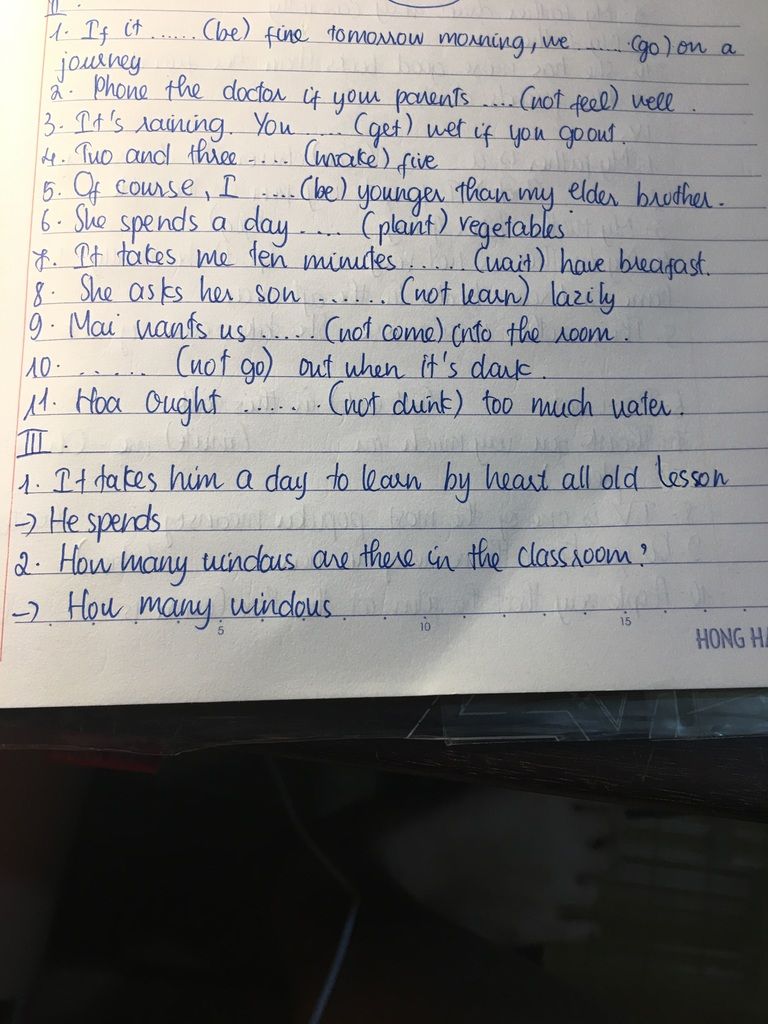 II.
1. If it ...... (be) fine tomorrow morning, we ...... (go) on a
journey
2. Phone the doctor if your parents .... (not feel) well.
3. It's raining. You .... (get) wet if you go out.
4. Two and three .... (make) five
5. Of course, I .... (be) younger than my elder brother.
6. She spends a day .... (plant) vegetables
7. It takes me ten minutes ..... (wait) have breafast.
8. She asks her son ...... (not learn) lazily
9. Mai wants us ..... (not come) into the room.
10. ...... (not go) out when it's dark.
11. Hoa ought ....... (not drink) too much water.
III.
1. It takes him a day to learn by heart all old lesson
→ He spends
2. How many windows are there in the classroom?
→ How many windows
5 10 15
HONG HA